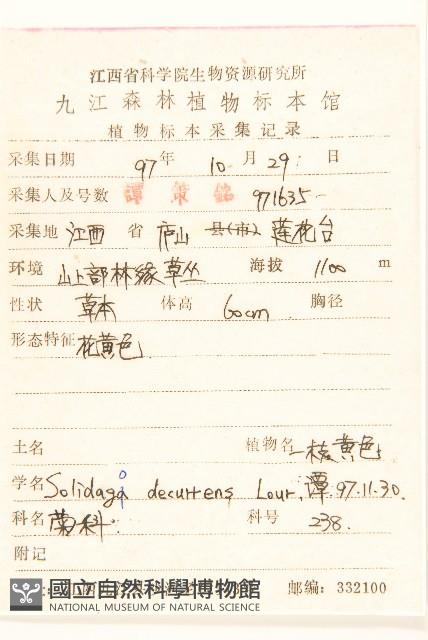 江西省科学院生物资源研究所
九江森林植物标本馆
植物标本采集记录
采集日期 97年 10月 29日
采集人及号数 譚策銘 971635
采集地 江西 省 庐山 县(市) 莲花台
环境 山上部林缘草丛 海拔 1100 m
性状 草本 体高 60cm 胸径
形态特征 花黄色
土名 植物名 一枝黄花
学名 Solidago decurrens Lour. 潭.97.11.30.
科名 菊科 科号 238.
附记
邮编: 332100
國立自然科學博物館
NATIONAL MUSEUM OF NATURAL SCIENCE